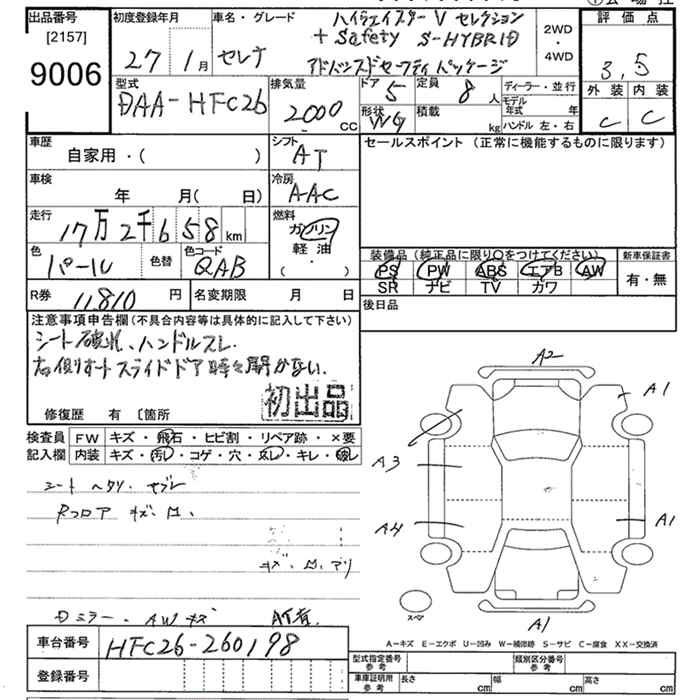 出品番号
[2157]
9006
初度登録年月
27年 1月
車名・グレード
セレナ
ハイウェイスターV セレクション
+ Safety S-HYBRID
アドバンスドセーフティパッケージ
2WD
・
4WD
評価点
3,5
外装 内装
C C
型式
DAA-HFC26
排気量
2000 CC
ドア 5
定員 8 人
形状 WG
積載 kg
ディーラー・並行
モデル年式 年
ハンドル 左・右
車歴
自家用・( )
シフト
AT
セールスポイント (正常に機能するものに限ります)
車検
年 月( 日)
冷房
AAC
走行
17万2千658km
燃料
ガソリン
軽油
( ・ )
色
パール
色替
色コード
QAB
装備品 (純正品に限り○をつけてください)
PS PW ABS エアB AW
SR ナビ TV カワ
新車保証書
有・無
R券 11,810 円
名変期限 月 日
後日品
注意事項申告欄(不具合内容等は具体的に記入して下さい)
シート破れ、ハンドルスレ.
右側オートスライドドア時々開かない.
初出品
修復歴 有 〔箇所
検査員
記入欄
FW キズ・飛石・ヒビ割・リペア跡・×要
内装 キズ・汚レ・コゲ・穴・スレ・キレ・破レ
シート ヘタリ・ヤブレ
Rフロア キズ・凹.
Dミラー・AWキズ
A2
A1
A3
A4
A1
A1
スペア
A-キズ E-エクボ U-凹み W-補修跡 S-サビ C-腐食 XX-交換済
車台番号 HFC26-260198
登録番号
型式指定番号
参考
類別区分番号
参考
車庫証明用
参考
長さ cm 幅 cm 高さ cm